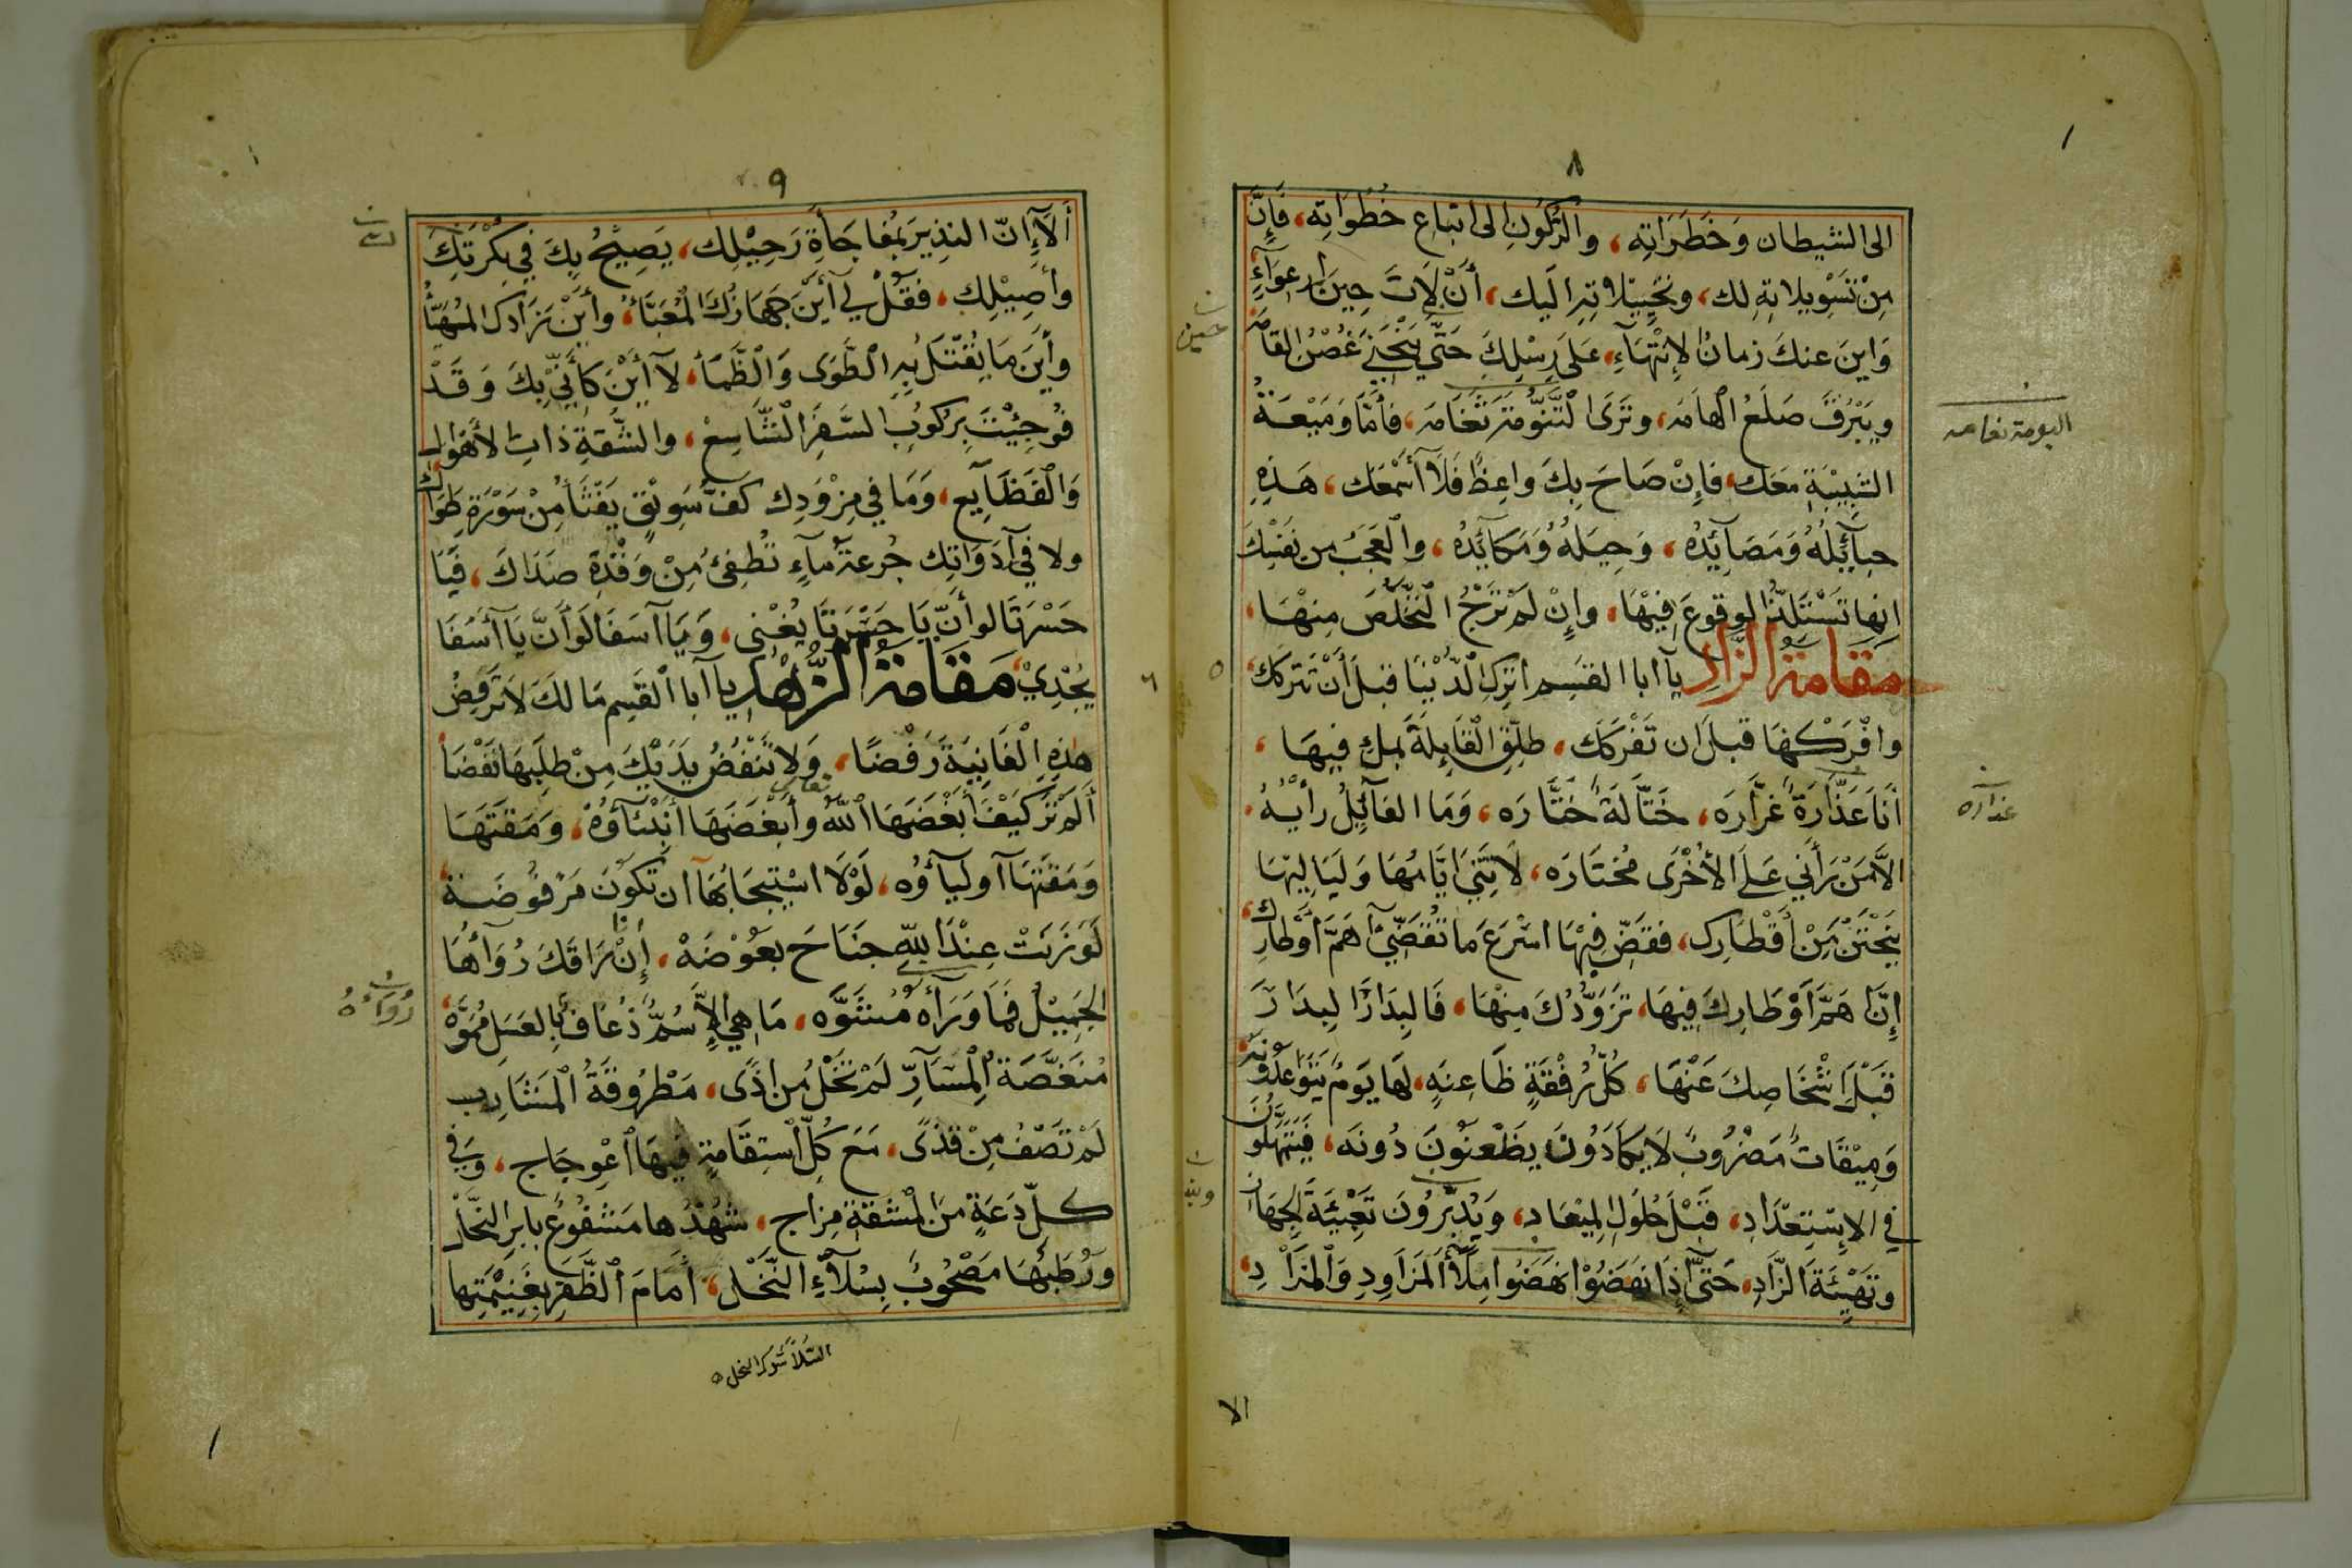 ٨
الى الشيطان وَخَطَرَاتِه، والرُّكُونِ الى اتباع خُطُوَاتِه، فَإِنَّ
مِنْ تَسْوِيلاتِهِ لك، وتخييلاته اليك، أَنْ لَاتَ حِينَ ارعِوَآءٍ
وَاينَ عنكَ زمانُ الإِنْتِهَآءِ، عَلَى رِسْلِكَ حَتَّى يَنْحَنِيَ غُصْنُ القامه
ويَبْرُقَ صَلَعُ الهامَه، وتَرَى التَّنُّومَةَ ثَغَامَه، فَأمَّا وَمَيْعَةُ
الشَّبِيْبَةِ مَعَك، فَإِنْ صَاحَ بِكَ واعِظٌ فَلَا أَسْمَعَك، هَذِهِ
حبآئِلُهُ وَمَصَآئِدُه، وَحِيَلُهُ وَمَكَائِدُه، والعَجَبُ من نفسك
انها تَسْتَلِذُّ الوقوعَ فِيْهَا، وإِنْ لَمْ تَرْجُ التَّخَلُّصَ مِنْهَا،
مَقَامَةُ الزَّادِ يآ ابا القسِم اترُكِ الدُّنْيَا قبلَ أَنْ تَتركَك،
وافْرَكْهَا قبلَ ان تَفْرَكَك، طلِّقِ القَايِلَةَ بملءِ فيهَا،
أنَا غَدَّارَةٌ غَرَّارَه، خَتَّالَةٌ خَتَّارَه، وَمَا الفَآئِلُ رأيُهُ
الاَّ مَنْ رَأَني عَلَى الأُخْرَى مُختَارَه، لا تَنِي ايَّامُهَا وَلَيَالِيْهَا
يَنْحَتْنَ مِنْ أَقْطَارِك، فقَضِّ فِيْهَا اسْرَعَ مَا تُقَضِّيْ أهَمَّ أَوْطَارِك
إِنَّ اهَمَّ أَوْطَارِكَ فِيهَا، تَزَوُّدُكَ مِنْهَا، فَالبِدَارَ البِدَارَ
قَبْلَ إِشْخَاصِكَ عَنْهَا، لِكُلِّ رُفْقَةٍ ظَاعِنَةٍ، يَومٌ يَتَوَاعَدُونَه
وَمِيْقَاتٌ مَضْرُوبٌ لا يَكَادُوْنَ يَظْعَنُونَ دُونَه، فَيَتَمَهَّلُونَ
في الاِسْتِعْدَادِ، قَبْلَ حُلُولِ الْمِيْعَادِ، وَيُدَبِّرُوْنَ تَعْبِئَةَ الجِهَازِ
وتَهْيِئَةَ الزَّادِ، حَتَّى إِذَا نَهَضُوْا نَهَضُوا مِلْأَ المَزَاوِدِ وَالمَزَادِ،
اليومة ثغامه
غدّاره
حين
٥
الا
٩
أَلَآ إِنَّ النذِيرَ بمُفاجَأَةِ رَحِيْلِك، يَصِيْحُ بِكَ فِي بُكْرَتِكَ
وأَصِيْلِك، فَقُلْ لِي أَيْنَ جَهَازُكَ الْمُعَبَّأُ، وأَيْنَ زَادُكَ المُهَيَّأُ
وأَيْنَ مَا يُقْتَلُ بِهِ الطَّوَى وَالظَّمَأُ، لَا أَيْنَ كَأَنِّي بِكَ وَقَدْ
فُوجِئْتَ بِرُكُوبِ السَّفَرِ الشَّاسِعْ، والشُّقَّةِ ذاتِ الأَهْوال
وَالْفَظَآيِع، وَمَا فِي مِزْوَدِك كَفُّ سَوِيْقٍ يَفْثَأُ مِنْ سَوْرَةِ طَوَاك
ولا في آدَوَاتِك جُرعةُ مآءٍ تُطْفِئُ مِنْ وَقْدَةِ صَدَاكَ، فَيَا
حَسْرَتَا لو أَنَّ يَا حَسْرَتَا يُغْنِي، وَيَا آسَفَا لَو أَنَّ يَا آسَفَا
يُجْدِيْ، مَقَامَةُ الزُّهْدِ يا آبا القَسِم مَا لَكَ لا تَرفِضُ
هٰذِهِ الْفَانِيَةَ رَفْضًا، وَلا تَنْفُضُ يَدَيْكَ مِنْ طلَبِهَا نَفْضًا
أَلَمْ تَرَ كَيْفَ أَبْغَضَهَا اللّٰهُ وأَبْغَضَهَا أَنْبِيَآؤُهُ، وَمَقَتَهَا
وَمَقَتَهَا آوليآؤُه، لَوْلَا اسْتِيجَابُهَا ان تَكُونَ مَرْفُوضَة
لَوَزَنَتْ عِنْدَ اللهِ جنَاحَ بعَوُضَهْ، إِنْ رَاقَكَ رُوَآؤُهَا
الجَمِيْلُ فَمَا وَرَآءَهُ مُشَوَّه، مَا هِيَ إِلَّا سُمٌّ ذُعَافٌ بِالعَسَلِ مُمَوَّه
مُنَغَّصَةُ الْمَسَآرِّ لَمْ تَخْلُ مِن اذًى، مَطْرُوقَةُ الْمَشَارِب
لَمْ تَصْفُ مِنْ قَذًى، مَعَ كُلِّ اسْتِقَامَةٍ فِيهَا اعْوِجَاج، وَفِي
كلِّ دَعَةٍ مِنَ المَشَقَّةِ مِزاج، شُهْدُها مَشْفُوعٌ بابرِ النَّحْل
ورُطَبُهَا مَصْحُوبٌ بِسُلَّآءِ النَّخْل، أَمَامَ الظَّفَرِ بِغَنِيْمَتِها
رُوَاؤُهُ
٦
السُّلّاَ شَوك النخل